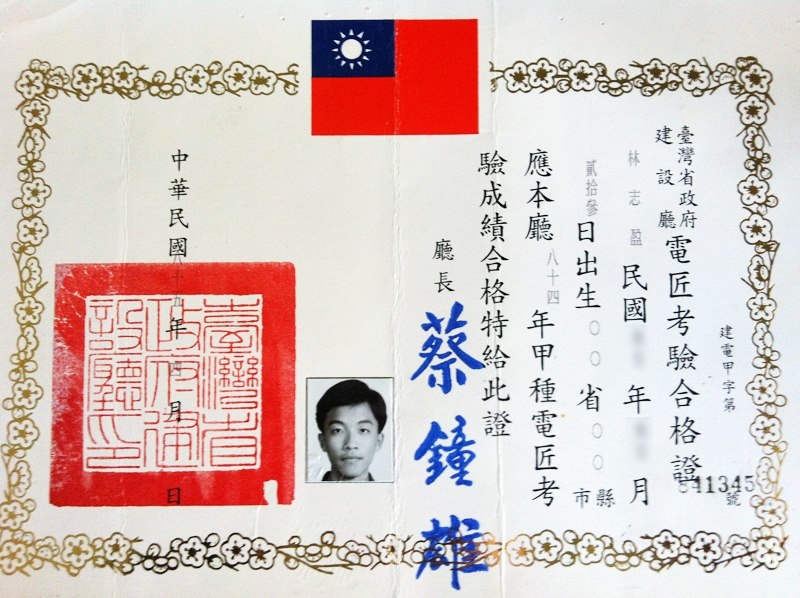 建電甲字第841345號
臺灣省政府建設廳電匠考驗合格證
林志盈民國年月
貳拾參日出生○○省○○縣市
應本廳八十四年甲種電匠考
驗成績合格特給此證
廳長蔡鐘雄
中華民國八十九年四月日
臺灣省
政府建
設廳印